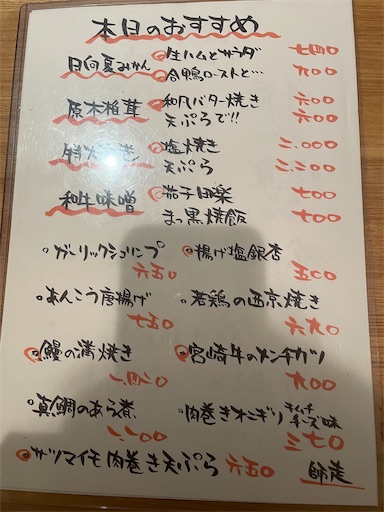 本日のおすすめ
日向夏みかん
生ハムとサラダ 七四〇
合鴨ローストと… 九〇〇
原木椎茸
和風バター焼き 六〇〇
天ぷらで!! 六〇〇
塩焼き 二、〇〇〇
天ぷら 二、二〇〇
和牛味噌
茄子田楽 七〇〇
まっ黒焼飯 七〇〇
ガーリックシュリンプ 六五〇
揚げ塩銀杏 五〇〇
あんこう唐揚げ 七五〇
若鶏の西京焼き 六九〇
鰻の蒲焼き
宮崎牛のメンチカツ 九〇〇
真鯛のあら煮
肉巻きオニギリ キムチ チーズ味 三七〇
サツマイモ肉巻き天ぷら 六五〇
師走